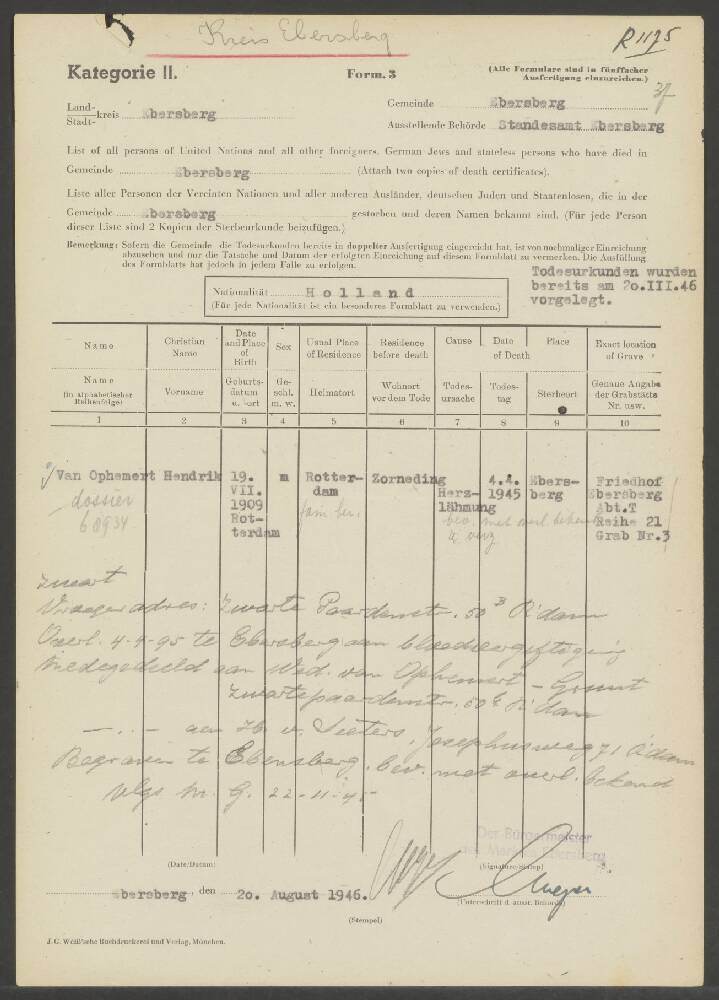 Kreis Ebersberg
R 1175
Kategorie II.
Form. 3
(Alle Formulare sind in fünffacher
Ausfertigung einzureichen.)
37
Land-
Stadt-
kreis Ebersberg
Gemeinde Ebersberg
Ausstellende Behörde Standesamt Ebersberg
List of all persons of United Nations and all other foreigners, German Jews and stateless persons who have died in
Gemeinde Ebersberg (Attach two copies of death certificates).
Liste aller Personen der Vereinten Nationen und aller anderen Ausländer, deutschen Juden und Staatenlosen, die in der
Gemeinde Ebersberg gestorben und deren Namen bekannt sind. (Für jede Person
dieser Liste sind 2 Kopien der Sterbeurkunde beizufügen.)
Bemerkung: Sofern die Gemeinde die Todesurkunden bereits in doppelter Ausfertigung eingereicht hat, ist von nochmaliger Einreichung
abzusehen und nur die Tatsache und Datum der erfolgten Einreichung auf diesem Formblatt zu vermerken. Die Ausfüllung
des Formblatts hat jedoch in jedem Falle zu erfolgen.
Todesurkunden wurden
bereits am 2o.III.46
vorgelegt.
Nationalität Holland
(Für jede Nationalität ist ein besonderes Formblatt zu verwenden.)
Name
Christian Name
Date and Place of Birth
Sex
Usual Place of Residence
Residence before death
Cause
Date
Place
of Death
Exact location of Grave
Name
(in alphabetischer Reihenfolge)
Vorname
Geburts-datum u. -ort
Ge-schl. m. w.
Heimatort
Wohnort vor dem Tode
Todes-ursache
Todes-tag
Sterbeort
Genaue Angabe der Grabstätte Nr. usw.
1 2 3 4 5 6 7 8 9 10
Van Ophemert Hendrik 19. m Rotter- Zorneding 4.4. Ebers- Friedhof
VII. dam Herz- 1945 berg Ebersberg
1909 lähmung Abt.T
Rot- Reihe 21
terdam Grab Nr.3
dossier
68934
fam. ber.
bev. met overl. bekend
zwart
Vroeger adres: Zwarte Paardenstr. 50 R'dam
Overl. 4-4-95 te Ebersberg aan bloedvergiftiging
Medegedeeld aan Wed. van Ophemert - Grunt
Zwartepaardenstr. 50 R'dam
— . — aan Hr v. Sieters, Josephusweg 71 A'dam
Begraven te Ebersberg, bev. met overl. bekend
vlgs Mr. G. 22-11-4
Der Bürgermeister
des Marktes Ebersberg
(Date/Datum)
(Signature/Stamp)
Ebersberg, den 2o. August 1946.
(Unterschrift d. ausst. Behörde)
(Stempel)
J. G. Weiß'sche Buchdruckerei und Verlag, München.